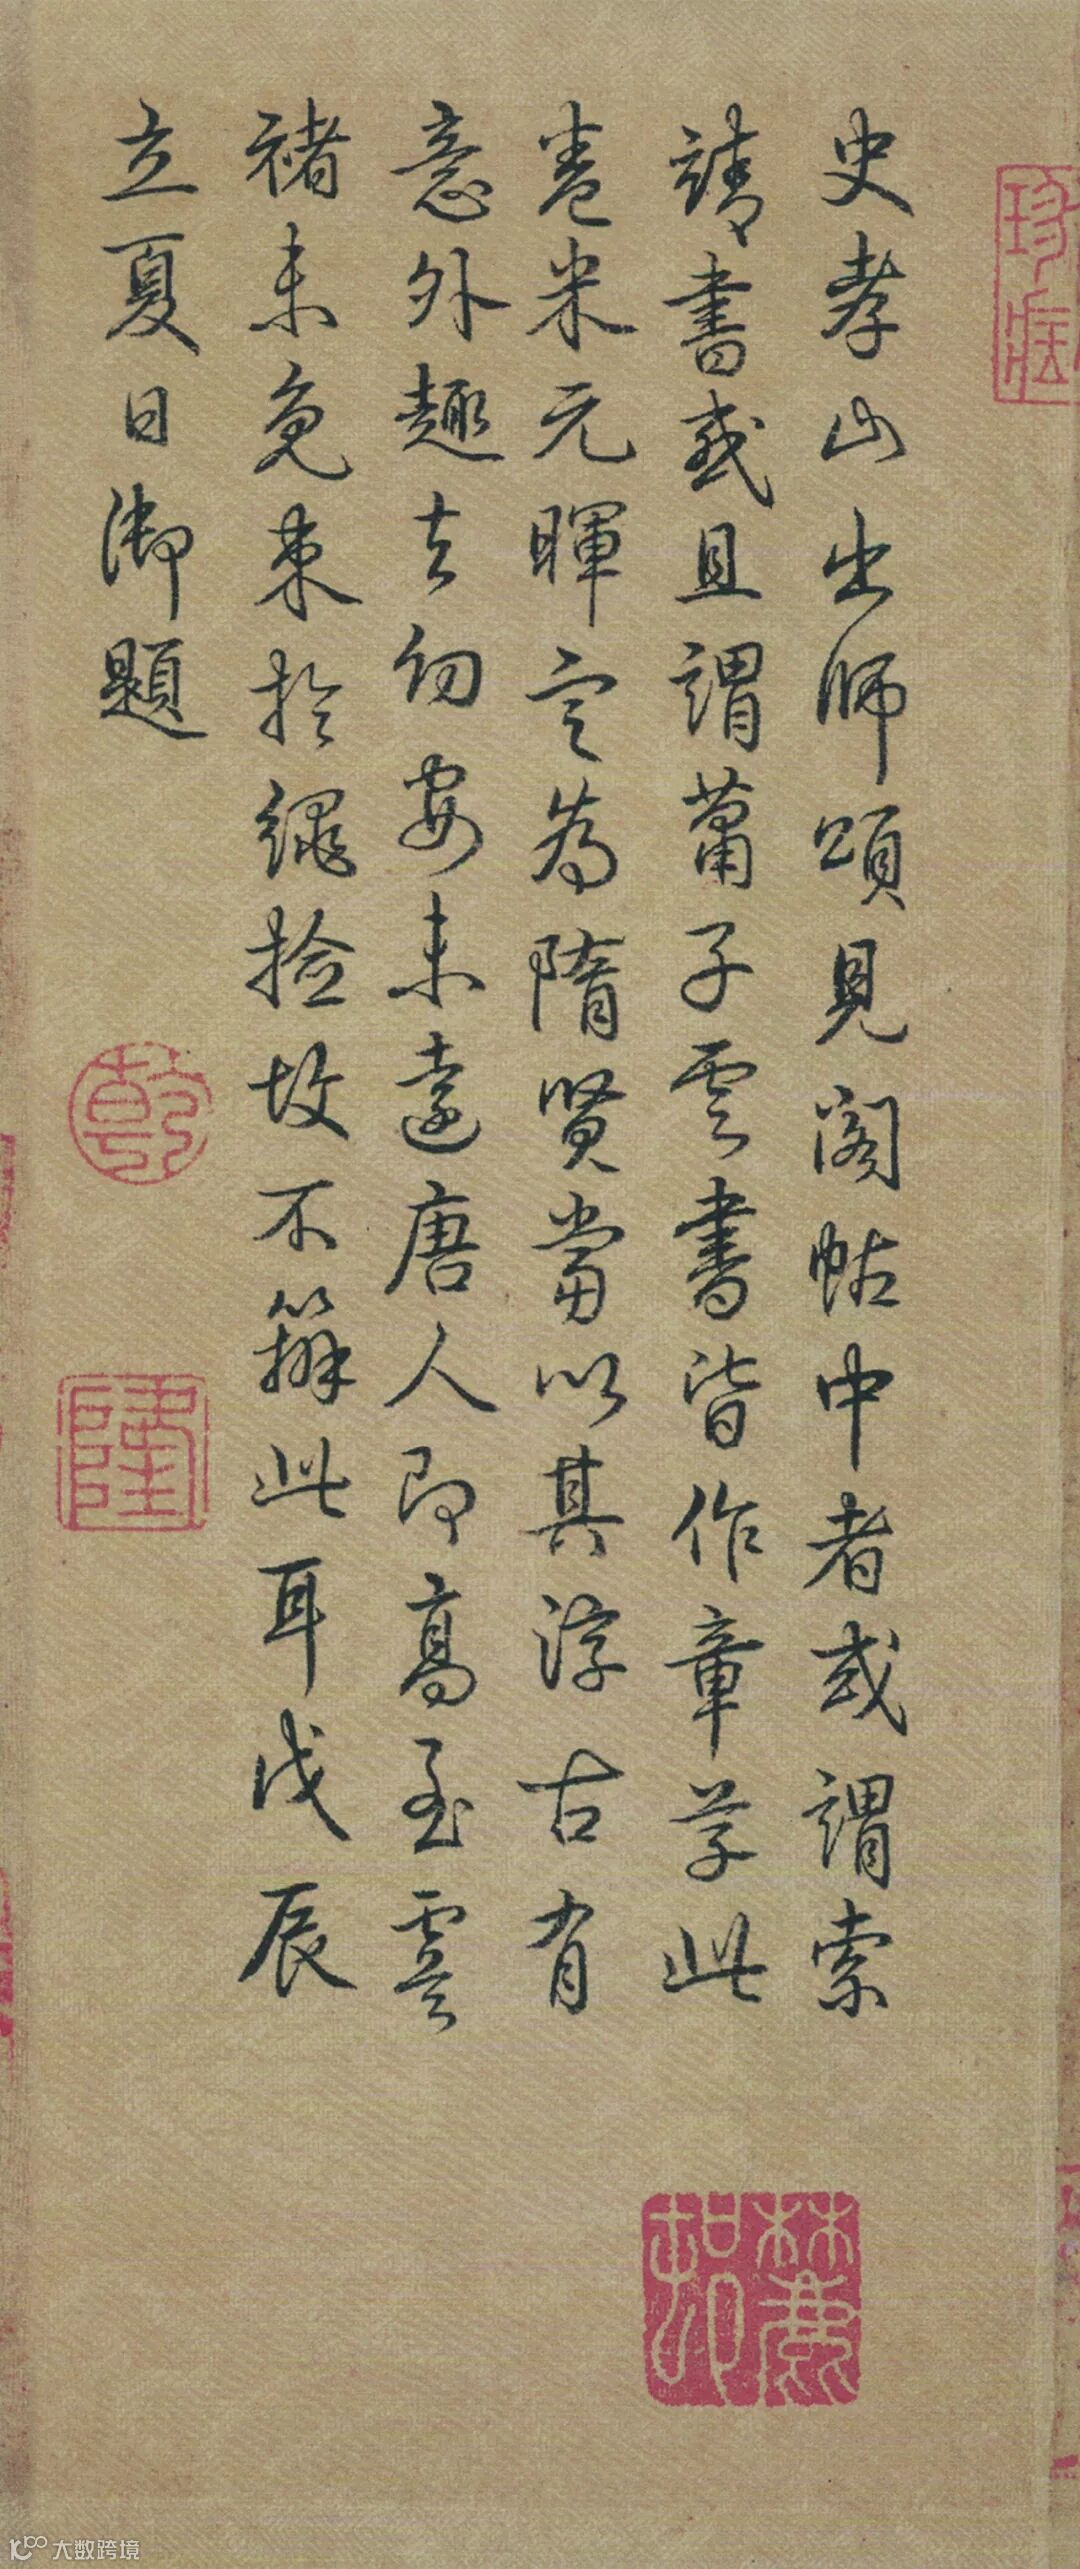 珍
史孝山出師頌見閣帖中者或謂索
靖書或且謂蕭子雲書皆作章草此
卷米元暉定為隋賢當以其淳古有
意外趣去幼安未遠唐人即高至虞
褚未免束於繩檢故不辦此耳戊辰
立夏日御題
乾
隆
大数跨境